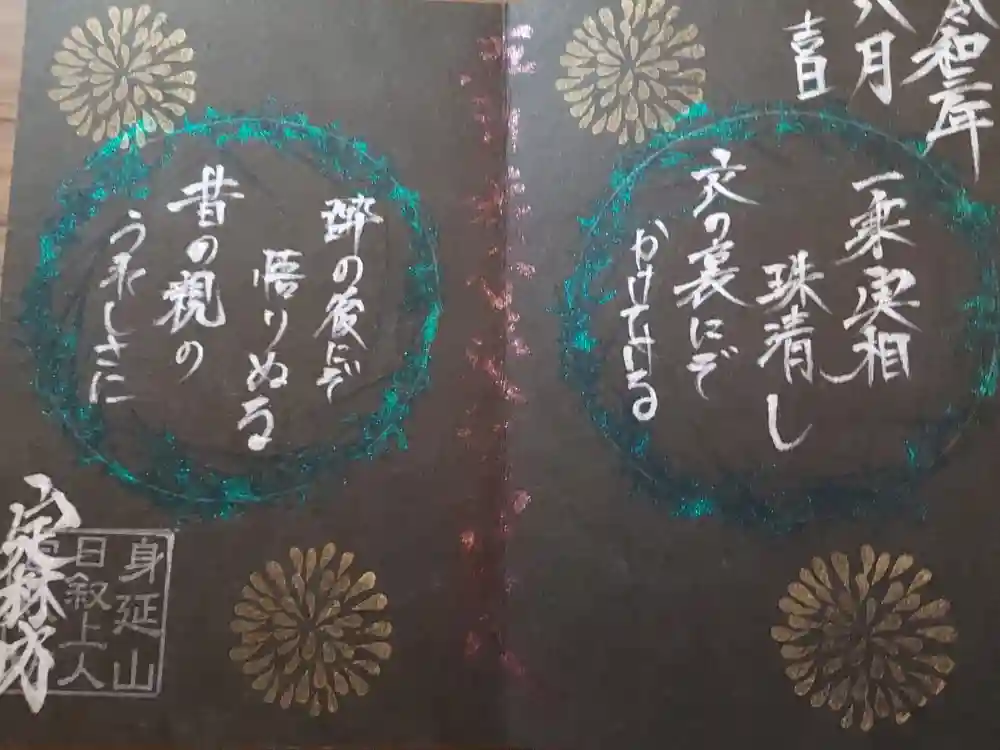 令和二年
八月
喜日
一乗実相
珠清し
衣の裏にぞ
かけてける
酔の後にぞ
悟りぬる
昔の親の
うれしさに
身延山
日叙上人
定林坊